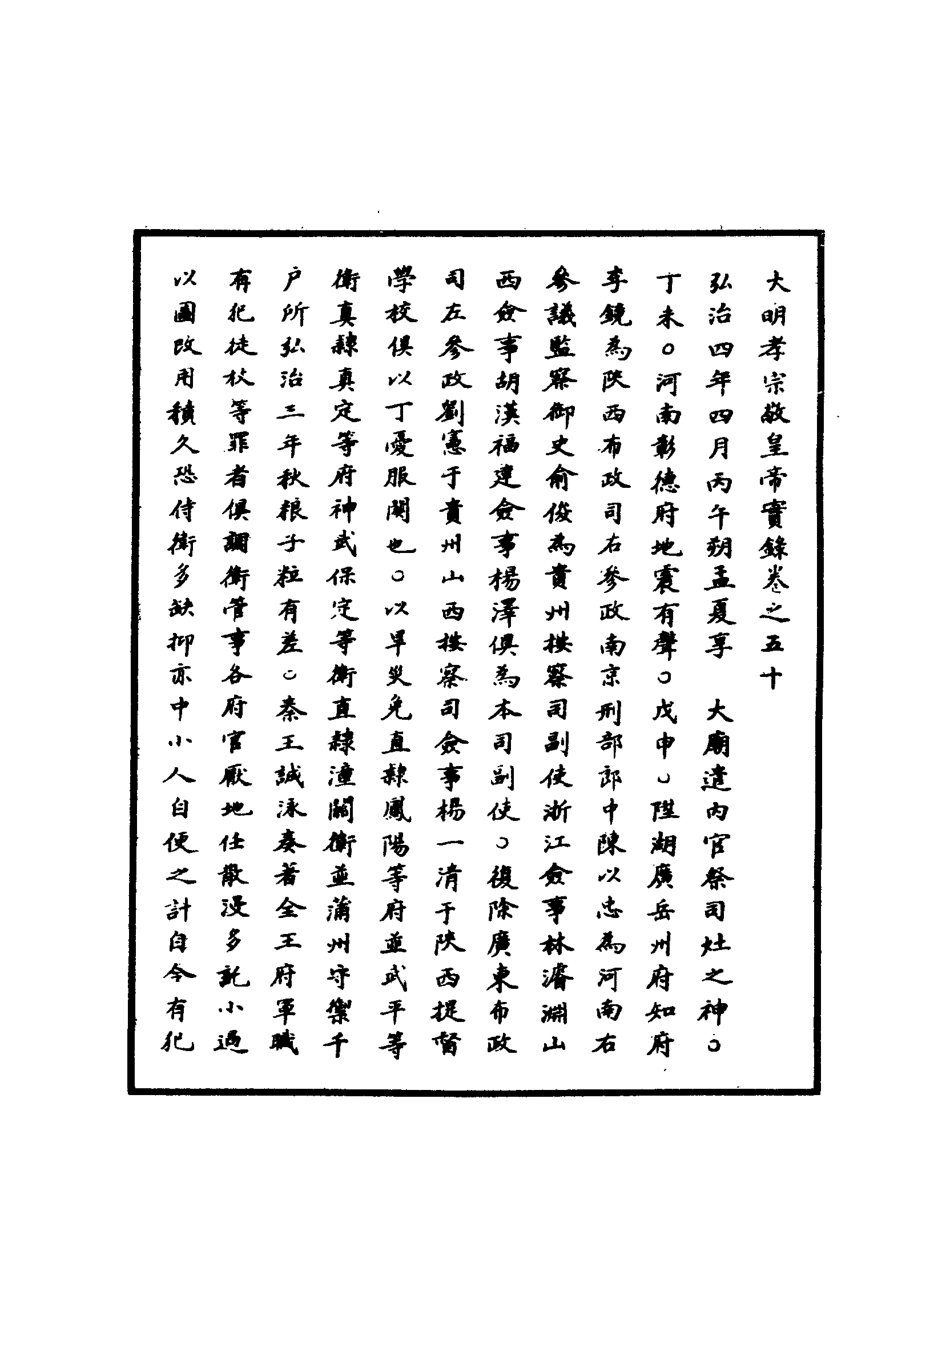 大明孝宗敬皇帝實錄卷之五十
弘治四年四月丙午朔孟夏享　大廟遣內官祭司灶之神○
丁未○河南彰德府地震有聲○戊申○陞湖廣岳州府知府
李鏡為陝西布政司右參政南京刑部郎中陳以忠為河南右
參議監察御史俞俊為貴州按察司副使浙江僉事林濬淵山
西僉事胡漢福建僉事楊澤俱為本司副使○復除廣東布政
司左參政劉憲于貴州山西按察司僉事楊一清于陝西提督
學校俱以丁憂服闋也○以旱災免直隸鳳陽等府並武平等
衛真隸真定等府神武保定等衛直隸潼關衛並蒲州守禦千
戶所弘治三年秋粮子粒有差○秦王誠泳奏著全王府軍職
有犯徒杖等罪者俱調衛管事各府官厭地任散漫多託小過
以圖改用積久恐侍衛多缺抑亦中小人自便之計自今有犯